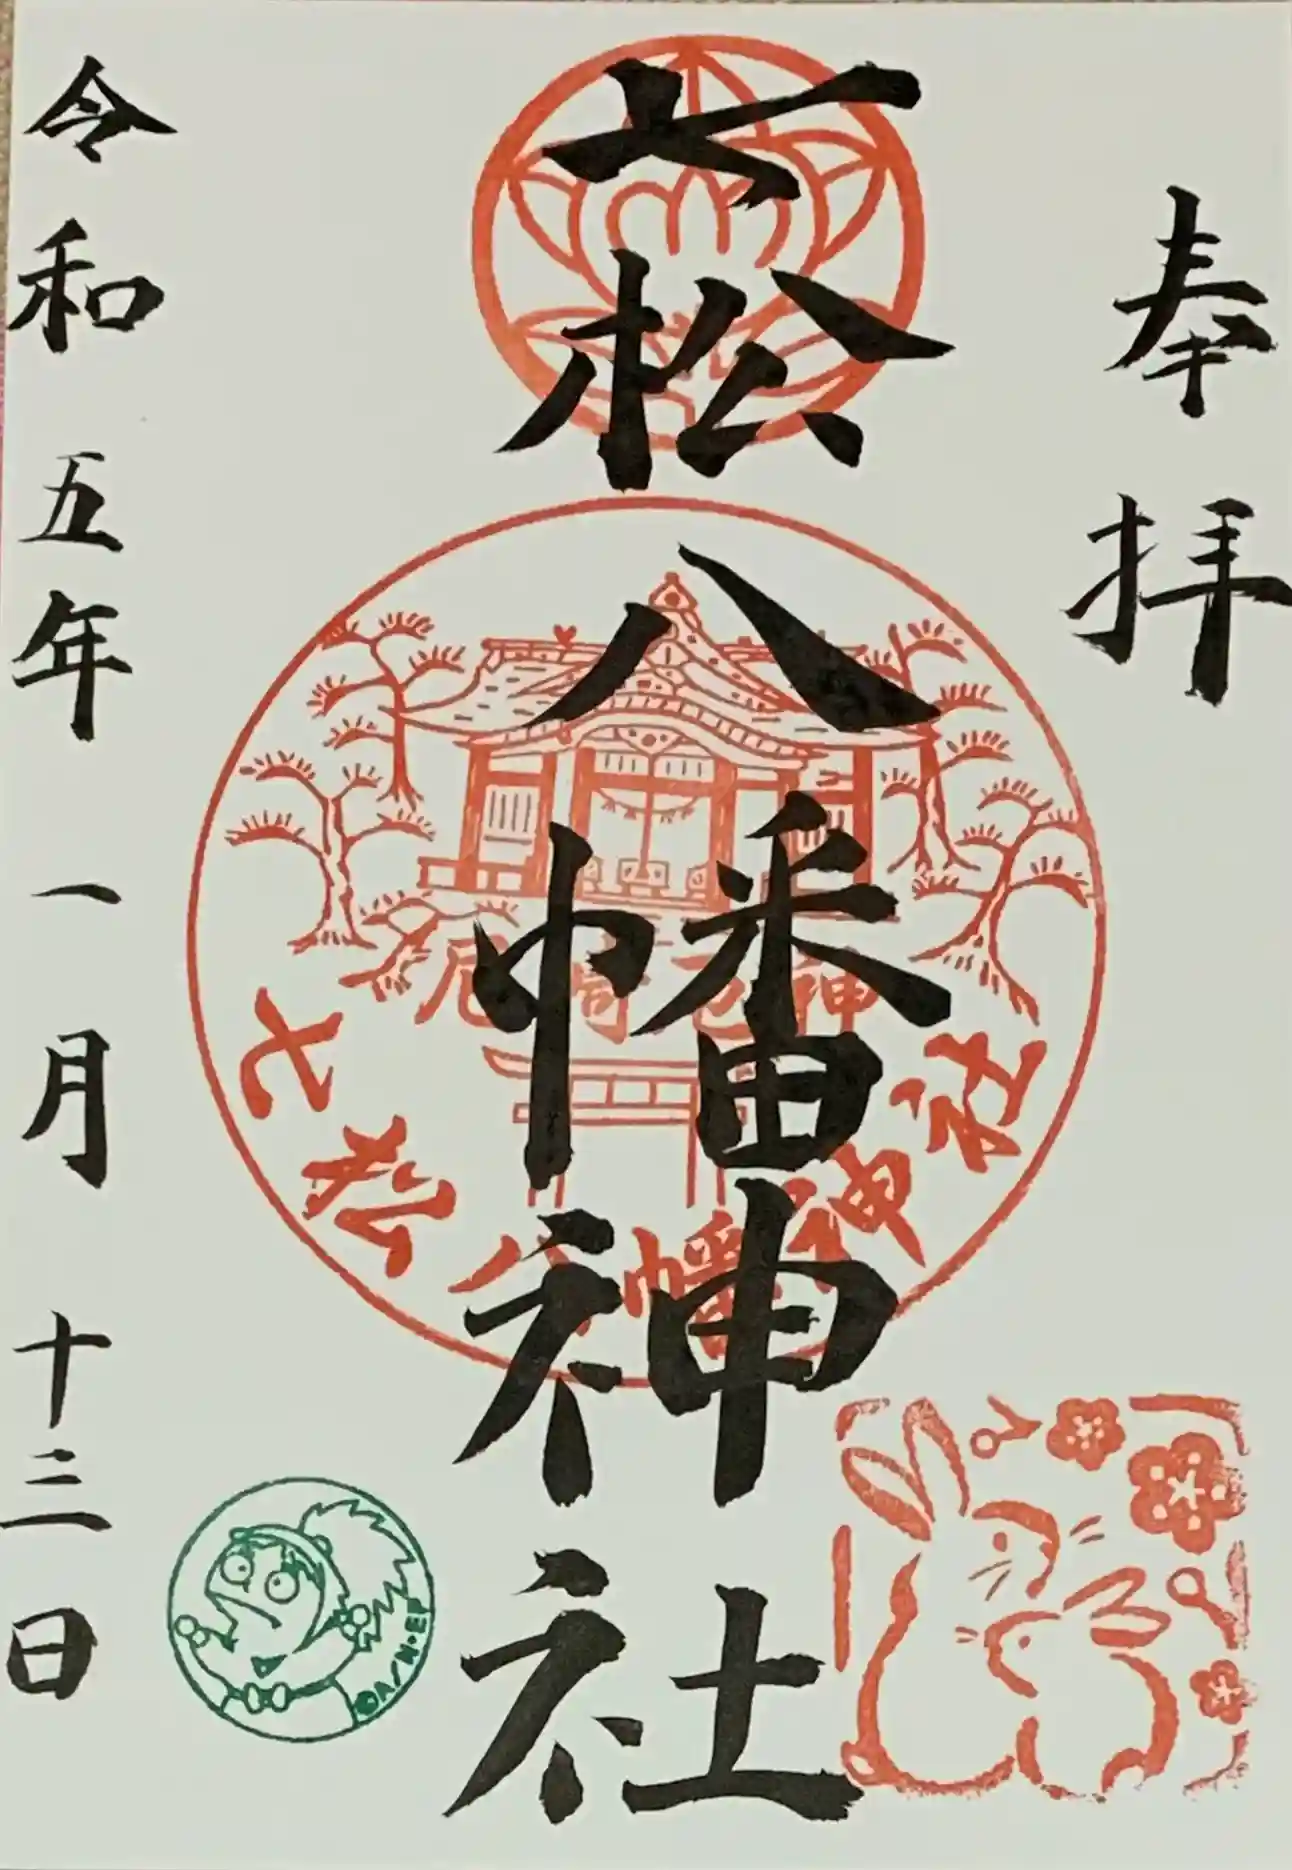 奉拝
七松八幡神社
尼崎 厄神
七松八幡神社
令和五年一月十三日